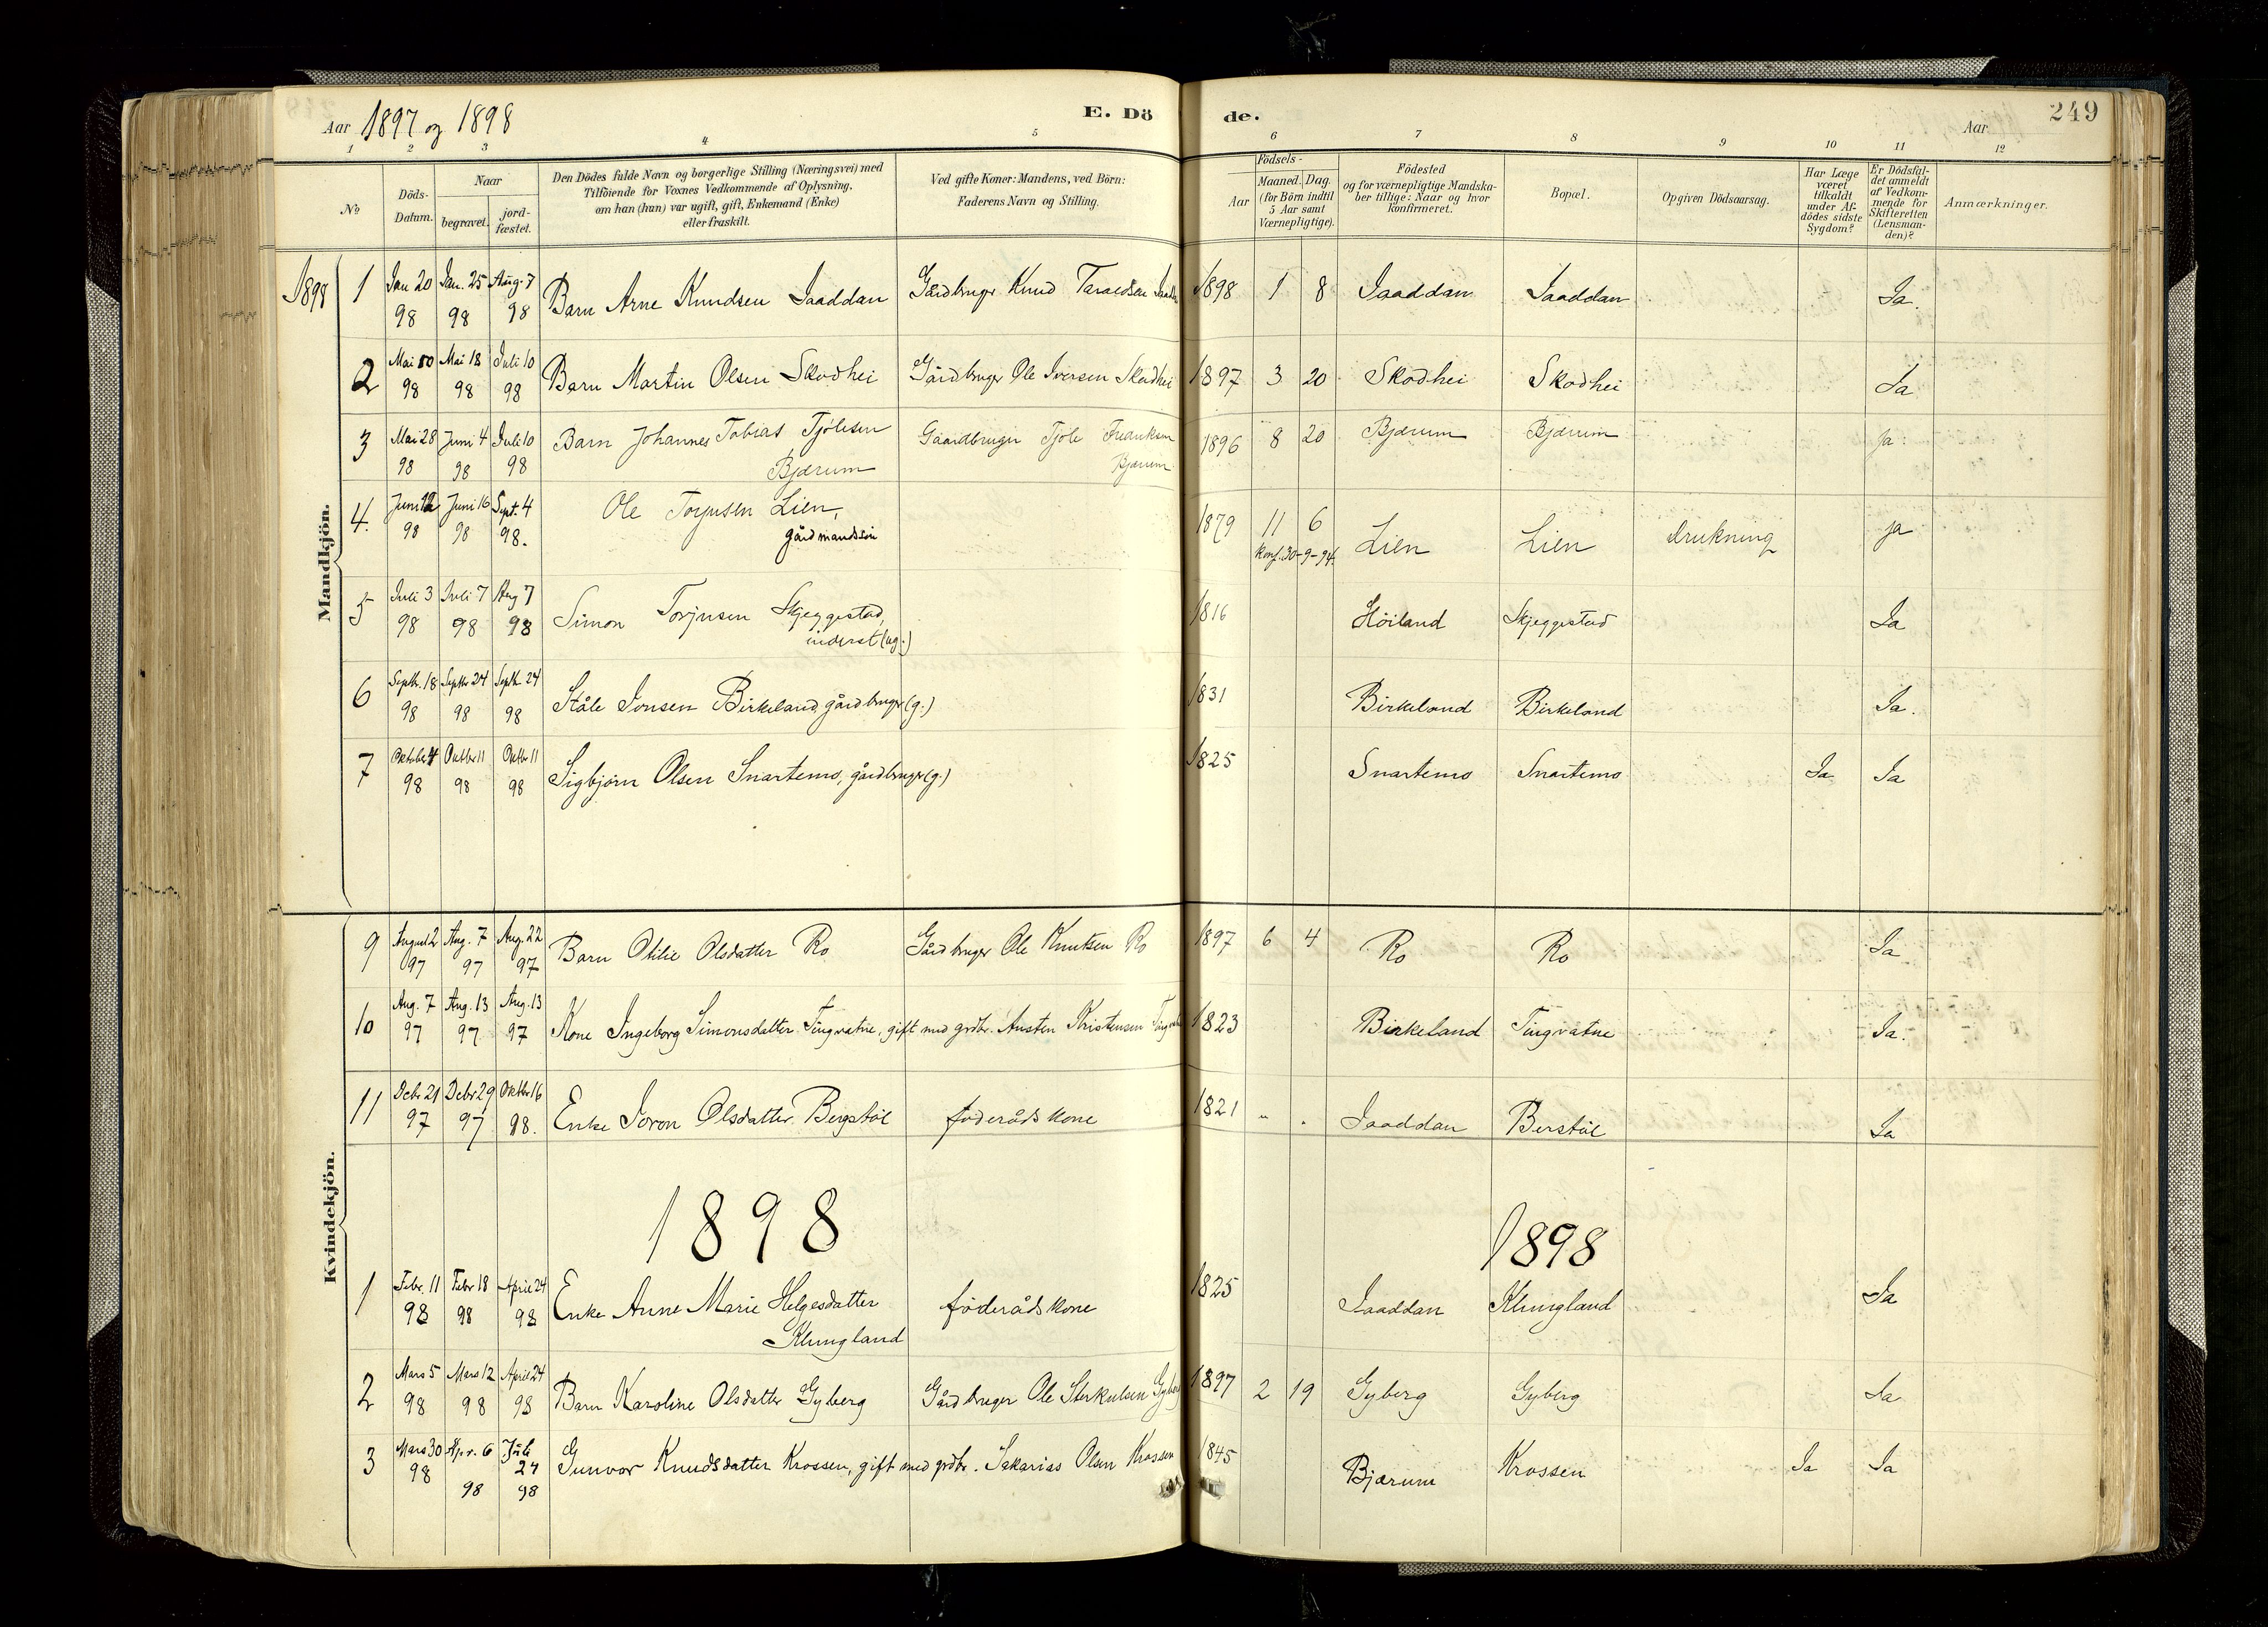 Aar 1897 og 1898
E. Dö
de.
Aar
249
1 2 3 4 5 6 7 8 9 10 11 12
No
Döds-
Datum.
Naar
begravet.
jord-
fæstet.
Den Dödes fulde Navn og borgerlige Stilling (Næringsvei) med
Tilföiende for Voxnes Vedkommende af Oplysning,
om han (hun) var ugift, gift, Enkemand (Enke)
eller fraskilt.
Ved gifte Koner: Mandens, ved Börn:
Faderens Navn og Stilling.
Födsels-
Aar
Maaned. Dag.
(for Börn indtil
5 Aar samt
Værnepligtige).
Födested
og for værnepligtige Mandska-
ber tillige: Naar og hvor
konfirmeret.
Bopæl.
Opgiven Dödsaarsag.
Har Læge
været
tilkaldt
under Af-
dödes sidste
Sygdom?
Er Dödsfal-
det anmeldt
af Vedkom-
mende for
Skifteretten
(Lensman-
den)?
Anmærkninger.
Mandkjön.
1898 1 Jan 20 Jan. 25 Aug. 7 Barn Arne Knudsen Iaaddan Gårdbruger Knud Taraldsen 1898 1 8 Iaaddan Iaaddan Ja.
98 98 98
2 Mai 10 Mai 18 Juli 10 Barn Martin Olsen Skodhei Gårdbruger Ole Iversen Skodhei 1897 3 20 Skodhei Skodhei Ja
98 98 98
3 Mai 28 Juni 4 Juli 10 Barn Johannes Tobias Tjölsen Gaardbruger Tjöl Fredriksen 1896 8 20 Bjærum Bjærum Ja
98 98 98 Bjærum Bjærum
4. Juni 12 Juni 16 Sept. 4 Ole Torjusen Lien, 1879 11 6 Lien Lien drukning ja
98 98 98. gårdmandssön konf. 30-9-94.
5 Juli 3 Juli 7 Aug 7 Simon Torjusen Skjeggestad, 1816 Höiland Skjeggestad Ja
98 98 98 inderst (ug.)
6 Septbr. 18 Septbr 24 Septbr 24 Ståle Jonsen Birkeland, gårdbruger (g.) 1831 Birkeland Birkeland Ja.
98 98 98
7 Oktober 4 Oktbr 11 Oktbr 11 Sigbjörn Olsen Snartemo, gårdbruger (g.) 1825 Snartemo Snartemo Ja Ja
98 98 98
Kvindekjön.
9 August 2 Aug. 7 Aug. 22 Barn Otilie Olsdatter Ro Gårdbruger Ole Knutsen Ro 1897 6 4 Ro Ro Ja
97 97 97
10 Aug. 7 Aug. 13 Aug. 13 Kone Ingeborg Simonsdatter Tingvatne, gift med grdbr. Austen Kristensen 1823 Birkeland Tingvatne Ja.
97 97 97
11 Debr 21 Debr 29 Oktbr 16 Enke Joron Olsdatter Bergstöl föderådskone 1821 " Iaaddan Berstöl Ja
97 97 98.
1898 1898
1 Febr. 11 Febr 18 April 24 Enke Anne Marie Helgesdatter föderådskone 1825 Iaaddan Klungland Ja
98 98 98 Klungland
2 Mars 5 Mars 12 April 24 Barn Karoline Olsdatter Gyberg Gårdbruger Ole Sterkulsen Gyberg 1897 2 19 Gyberg Gyberg Ja
98 98 98
3 Mars 30 Apr. 6 Juli 24 Gunvor Knudsdatter Krossen, gift med grdbr. Sakarias Olsen Krossen 1845 Bjærum Krossen Ja Ja
98 98 98